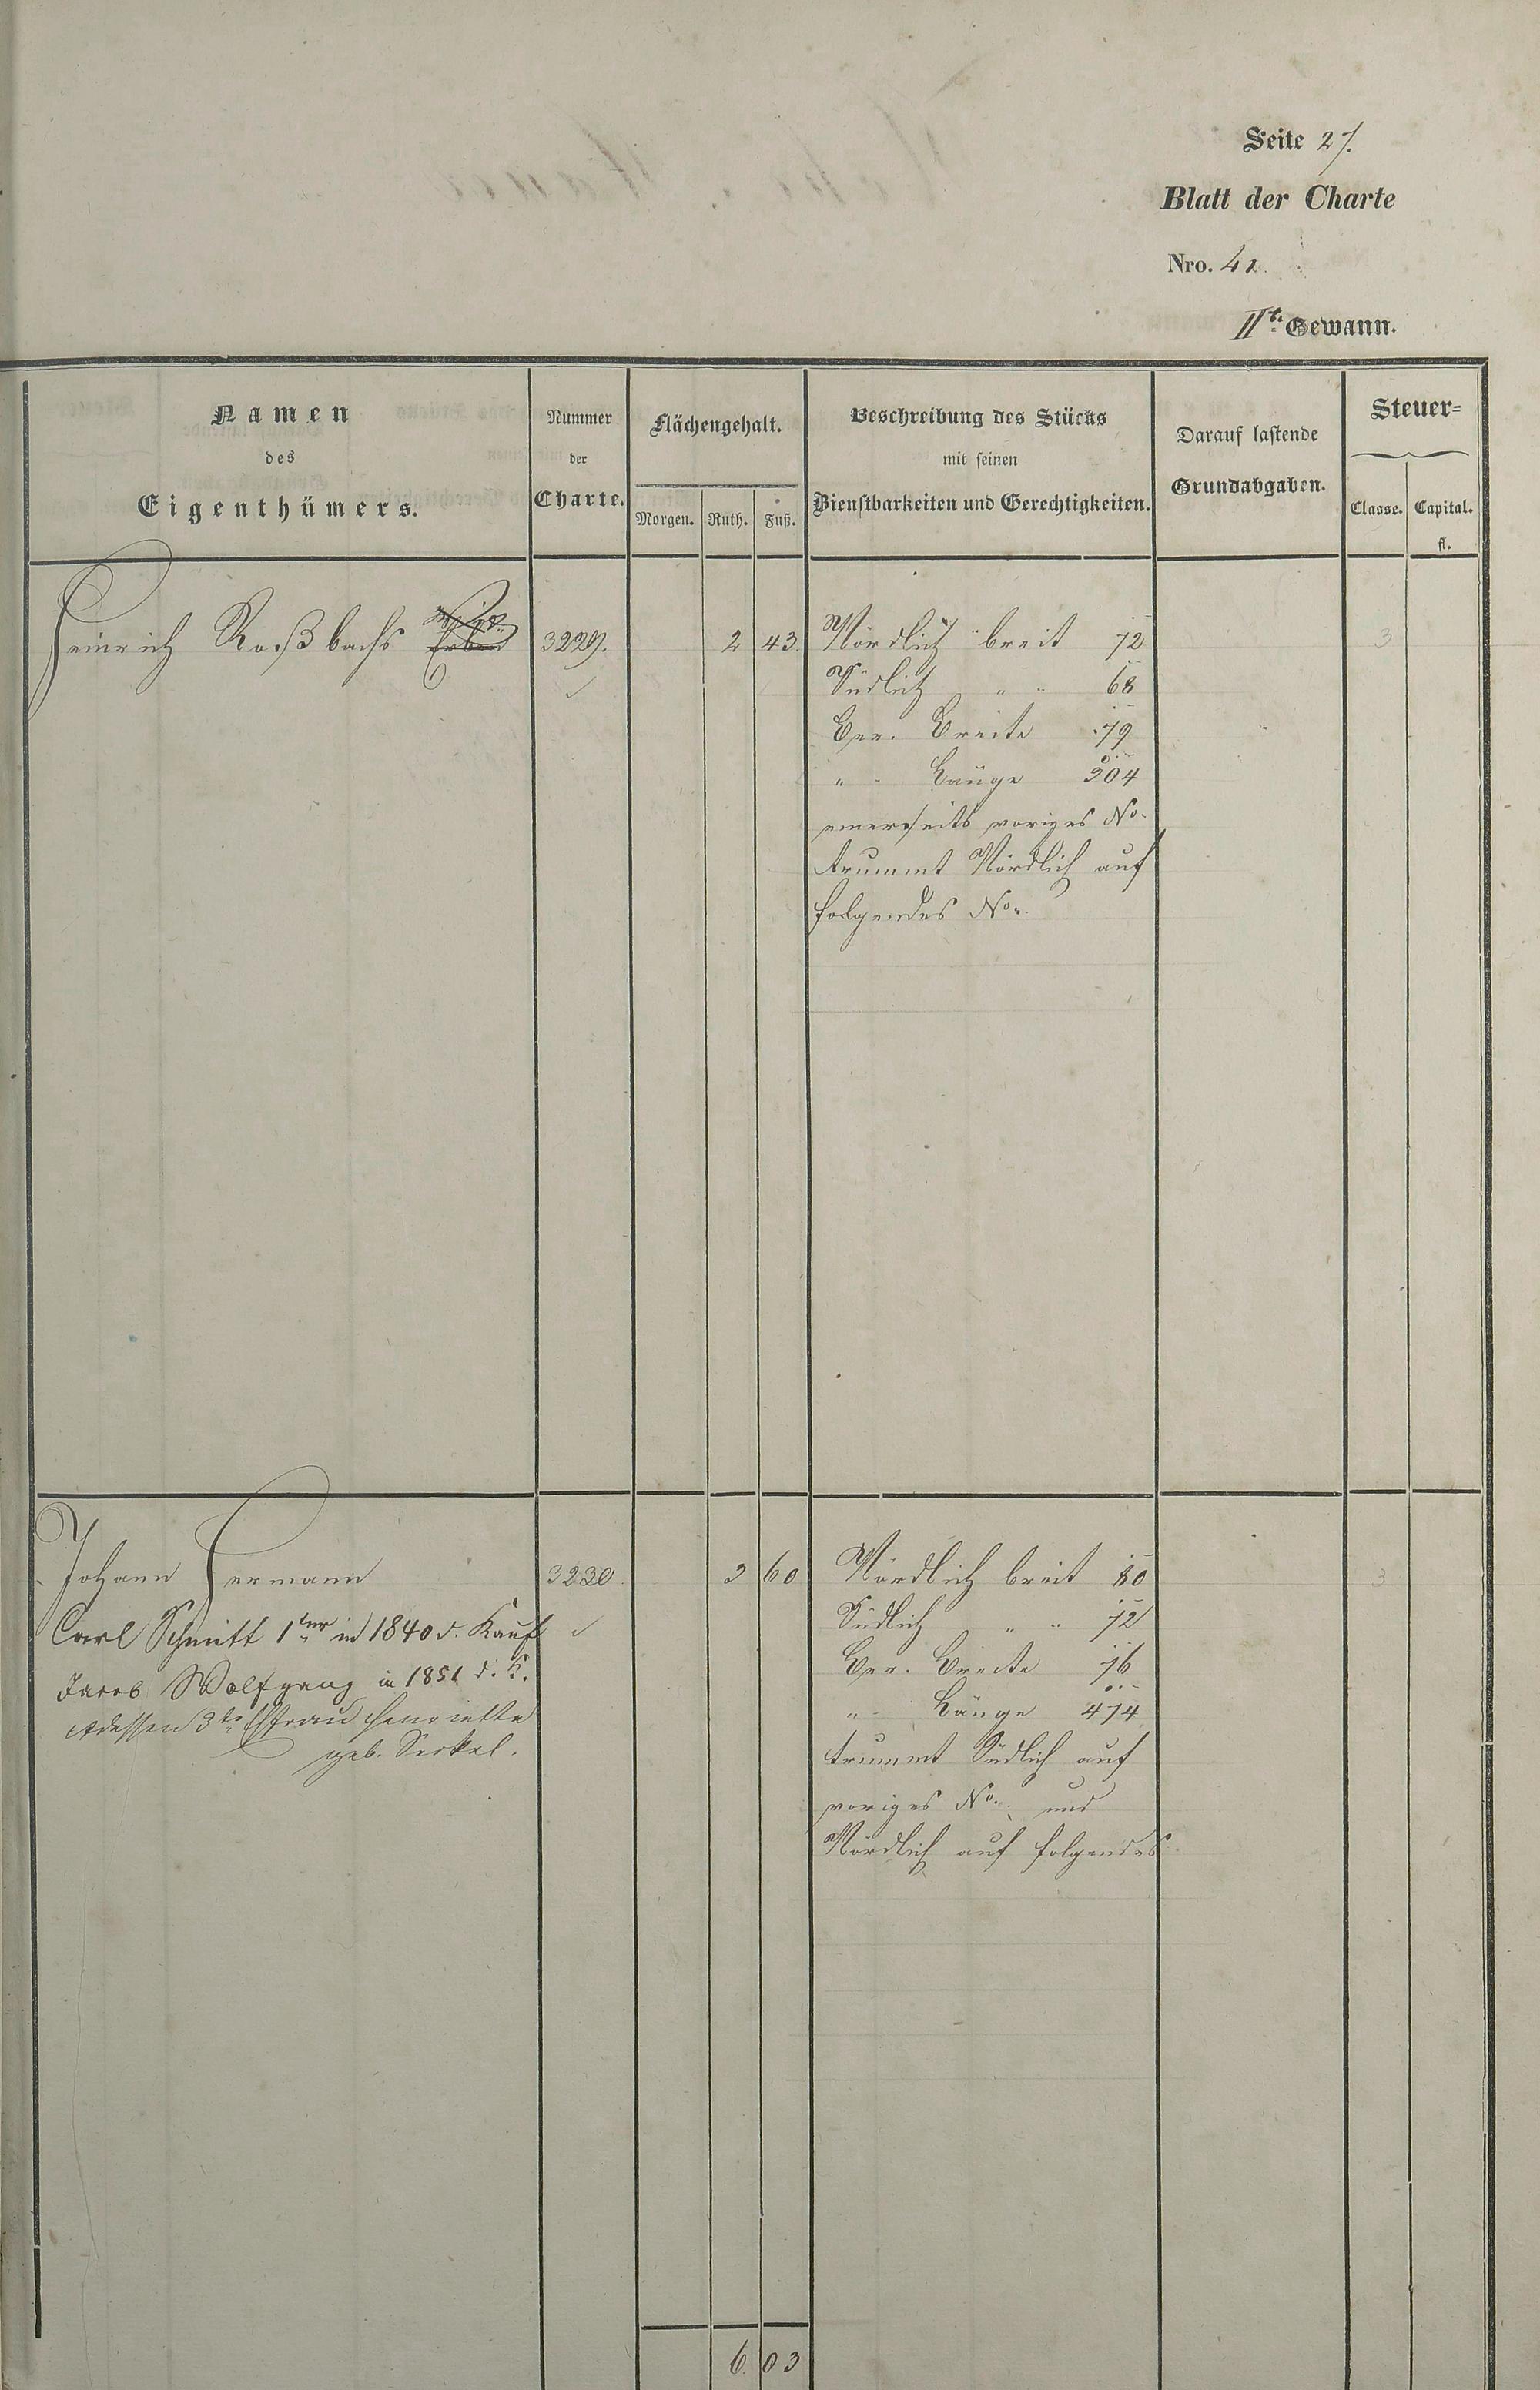 Seite 27.
Blatt der Charte
Nro. 41.
IIte Gewann.
Namen
des
Eigenthümers.
Nummer
der
Charte.
Flächengehalt.
Morgen. Ruth. Fuß.
Beschreibung des Stücks
mit seinen
Dienstbarkeiten und Gerechtigkeiten.
Darauf lastende
Grundabgaben.
Steuer=
Classe. Capital.
fl.
Heinrich Roßbachs Erben 3229. 2 43. Nördlich breit 72 3
Südlich " " 68
Ber. Breite 79
" Länge 304
einerseits voriges No.
trummt Nördlich auf
folgendes No.
Johann Hermann 3230 3 60 Nördlich breit 80 3
Carl Schmitt 1ter in 1840 d. Kauf Südlich " " 72
Jacob Wolfgang in 1851 d. K. Ber. Breite 76
dessen 3te Ehfrau Henriette " Länge 474
geb. Seckel. trummt Südlich auf
voriges No. und
Nördlich auf folgendes
6. 03